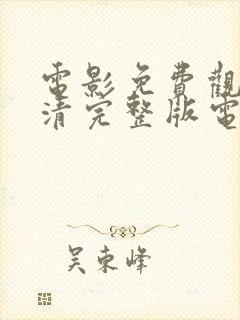 電影免費觀
清完整版電
吴东峰